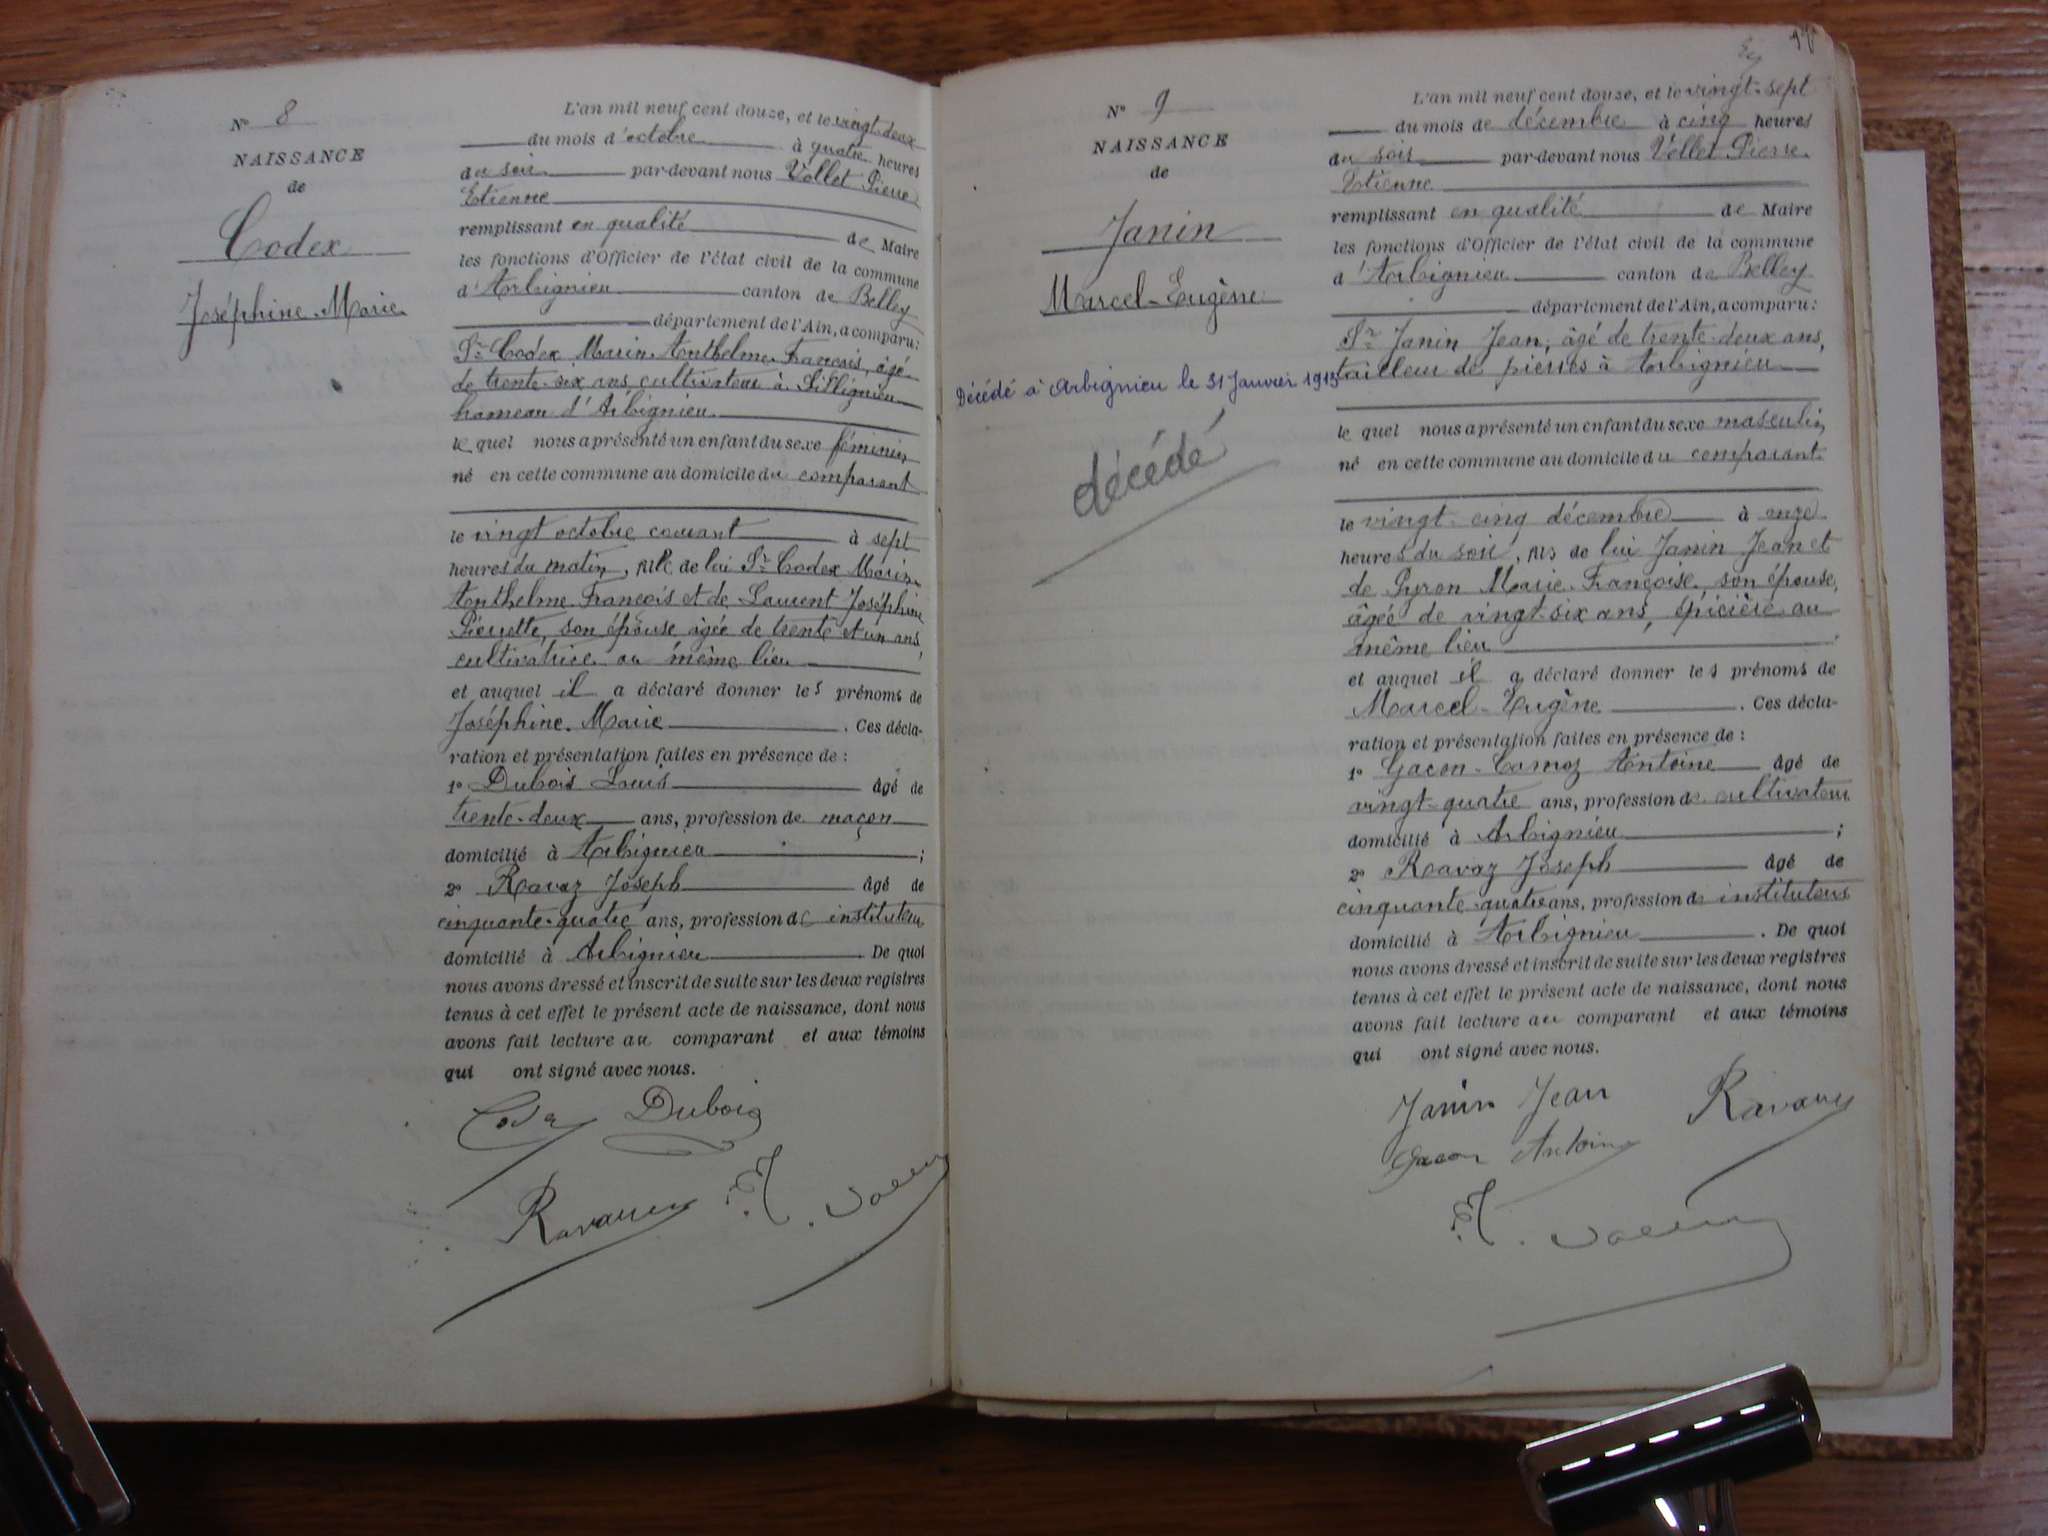 N° 8
NAISSANCE
de
Codex
Joséphine-Marie
L'an mil neuf cent douze, et le vingt-deux
du mois d'octobre à quatre heures
du soir par-devant nous Vollet Pierre
Etienne
remplissant en qualité de Maire
les fonctions d'Officier de l'état civil de la commune
d'Arbignieu canton de Belley
département de l'Ain, a comparu:
Sr Codex Marin-Anthelme-François, âgé
de trente-six ans, cultivateur à Sillignieu
hameau d'Arbignieu
le quel nous a présenté un enfant du sexe féminin
né en cette commune au domicile du comparant
le vingt octobre courant à sept
heures du matin, fille de lui Sr Codex Marin-
Anthelme-François et de Laurent Joséphine
Pierrette, son épouse âgée de trente et un ans,
cultivatrice au même lieu
et auquel il a déclaré donner les prénoms de
Joséphine-Marie. Ces décla-
ration et présentation faites en présence de :
1° Dubois Louis âgé de
trente-deux ans, profession de maçon
domicilié à Arbignieu ;
2° Ravaz Joseph âgé de
cinquante-quatre ans, profession de instituteur
domicilié à Arbignieu. De quoi
nous avons dressé et inscrit de suite sur les deux registres
tenus à cet effet le présent acte de naissance, dont nous
avons fait lecture au comparant et aux témoins
qui ont signé avec nous.
Codex Dubois
N° 9
NAISSANCE
de
Janin
Marcel-Eugène
Décédé à Arbignieu le 31 Janvier 1913
décédé
L'an mil neuf cent douze, et le vingt-sept
du mois de décembre à cinq heures
du soir par-devant nous Vollet Pierre-
Etienne
remplissant en qualité de Maire
les fonctions d'Officier de l'état civil de la commune
d'Arbignieu canton de Belley
département de l'Ain, a comparu:
Sr Janin Jean, âgé de trente-deux ans,
tailleur de pierres à Arbignieu
le quel nous a présenté un enfant du sexe masculin
né en cette commune au domicile du comparant
le vingt-cinq décembre à onze
heures du soir, fils de lui Janin Jean et
de Pyron Marie-Françoise, son épouse,
âgée de vingt-six ans, épicière au
même lieu
et auquel il a déclaré donner les prénoms de
Marcel-Eugène. Ces décla-
ration et présentation faites en présence de :
1° Gacon-Camoz Antoine âgé de
vingt-quatre ans, profession de cultivateur
domicilié à Arbignieu ;
2° Ravaz Joseph âgé de
cinquante-quatre ans, profession de instituteur
domicilié à Arbignieu. De quoi
nous avons dressé et inscrit de suite sur les deux registres
tenus à cet effet le présent acte de naissance, dont nous
avons fait lecture au comparant et aux témoins
qui ont signé avec nous.
Janin Jean
Gacon Antoine